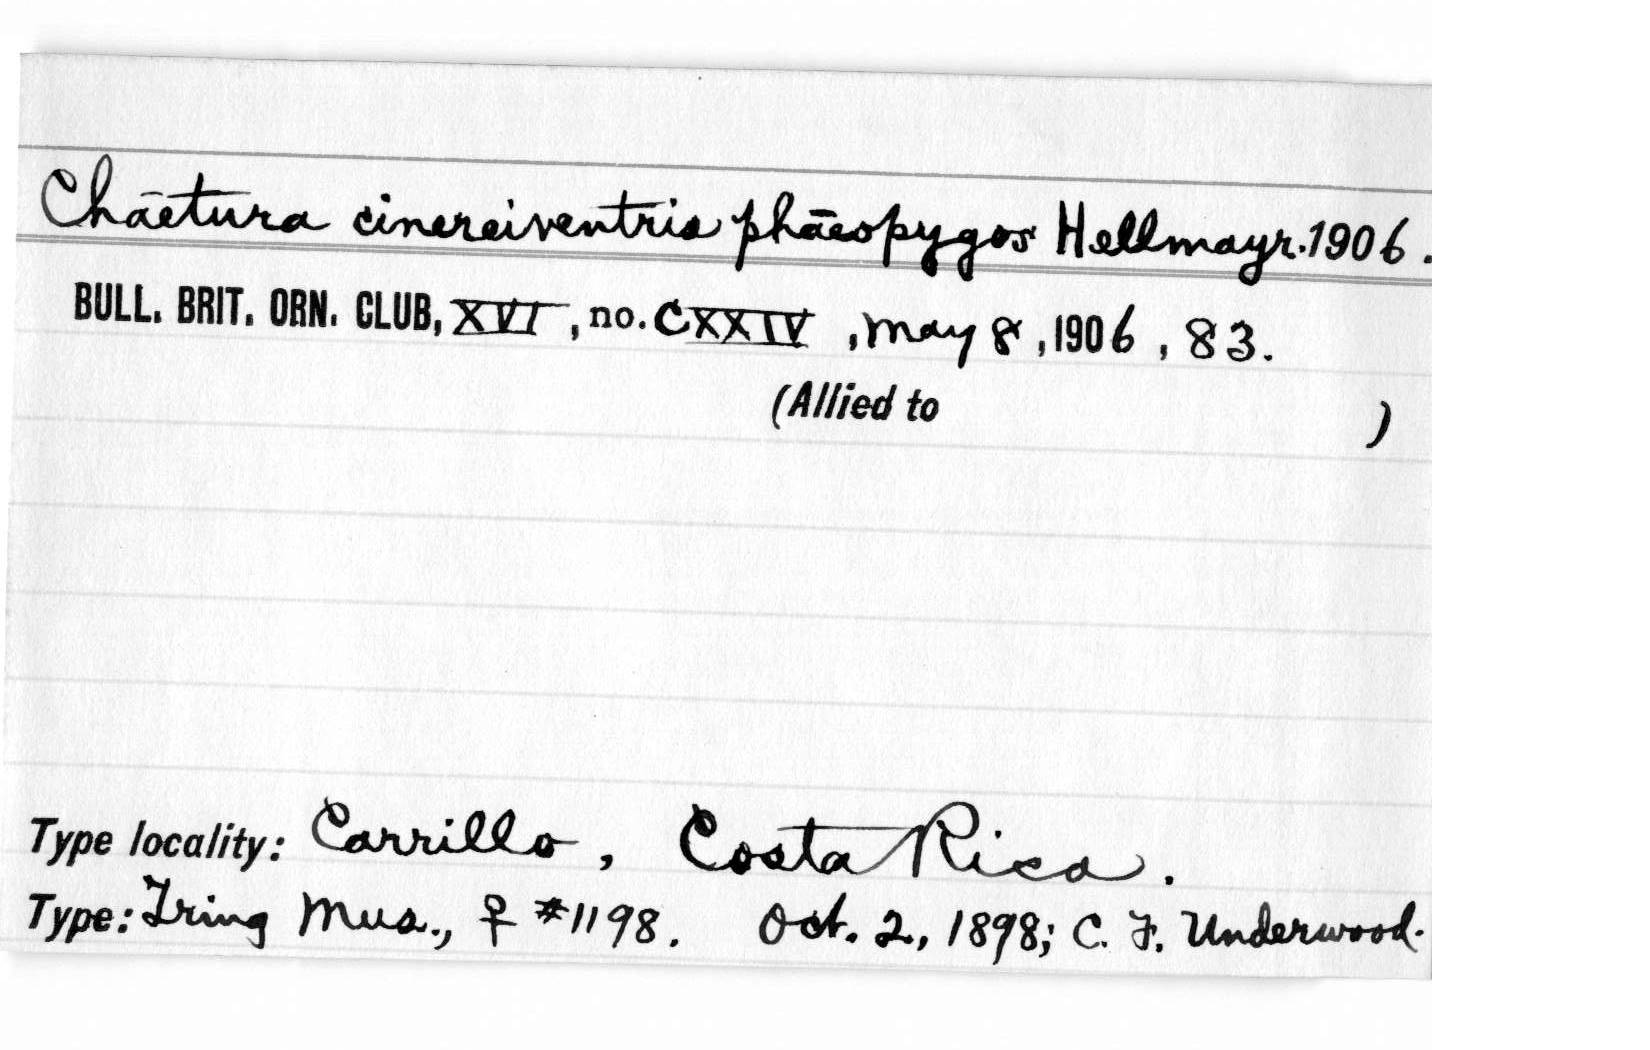 Chaetura cinereiventris phaeopygos Hellmayr. 1906.
BULL. BRIT. ORN. CLUB, XVI, no. CXXIV, May 8, 1906, 83.
(Allied to )
Type locality: Carrillo, Costa Rica.
Type: Tring Mus., ♀ #1198. Oct. 2, 1898; C. F. Underwood.